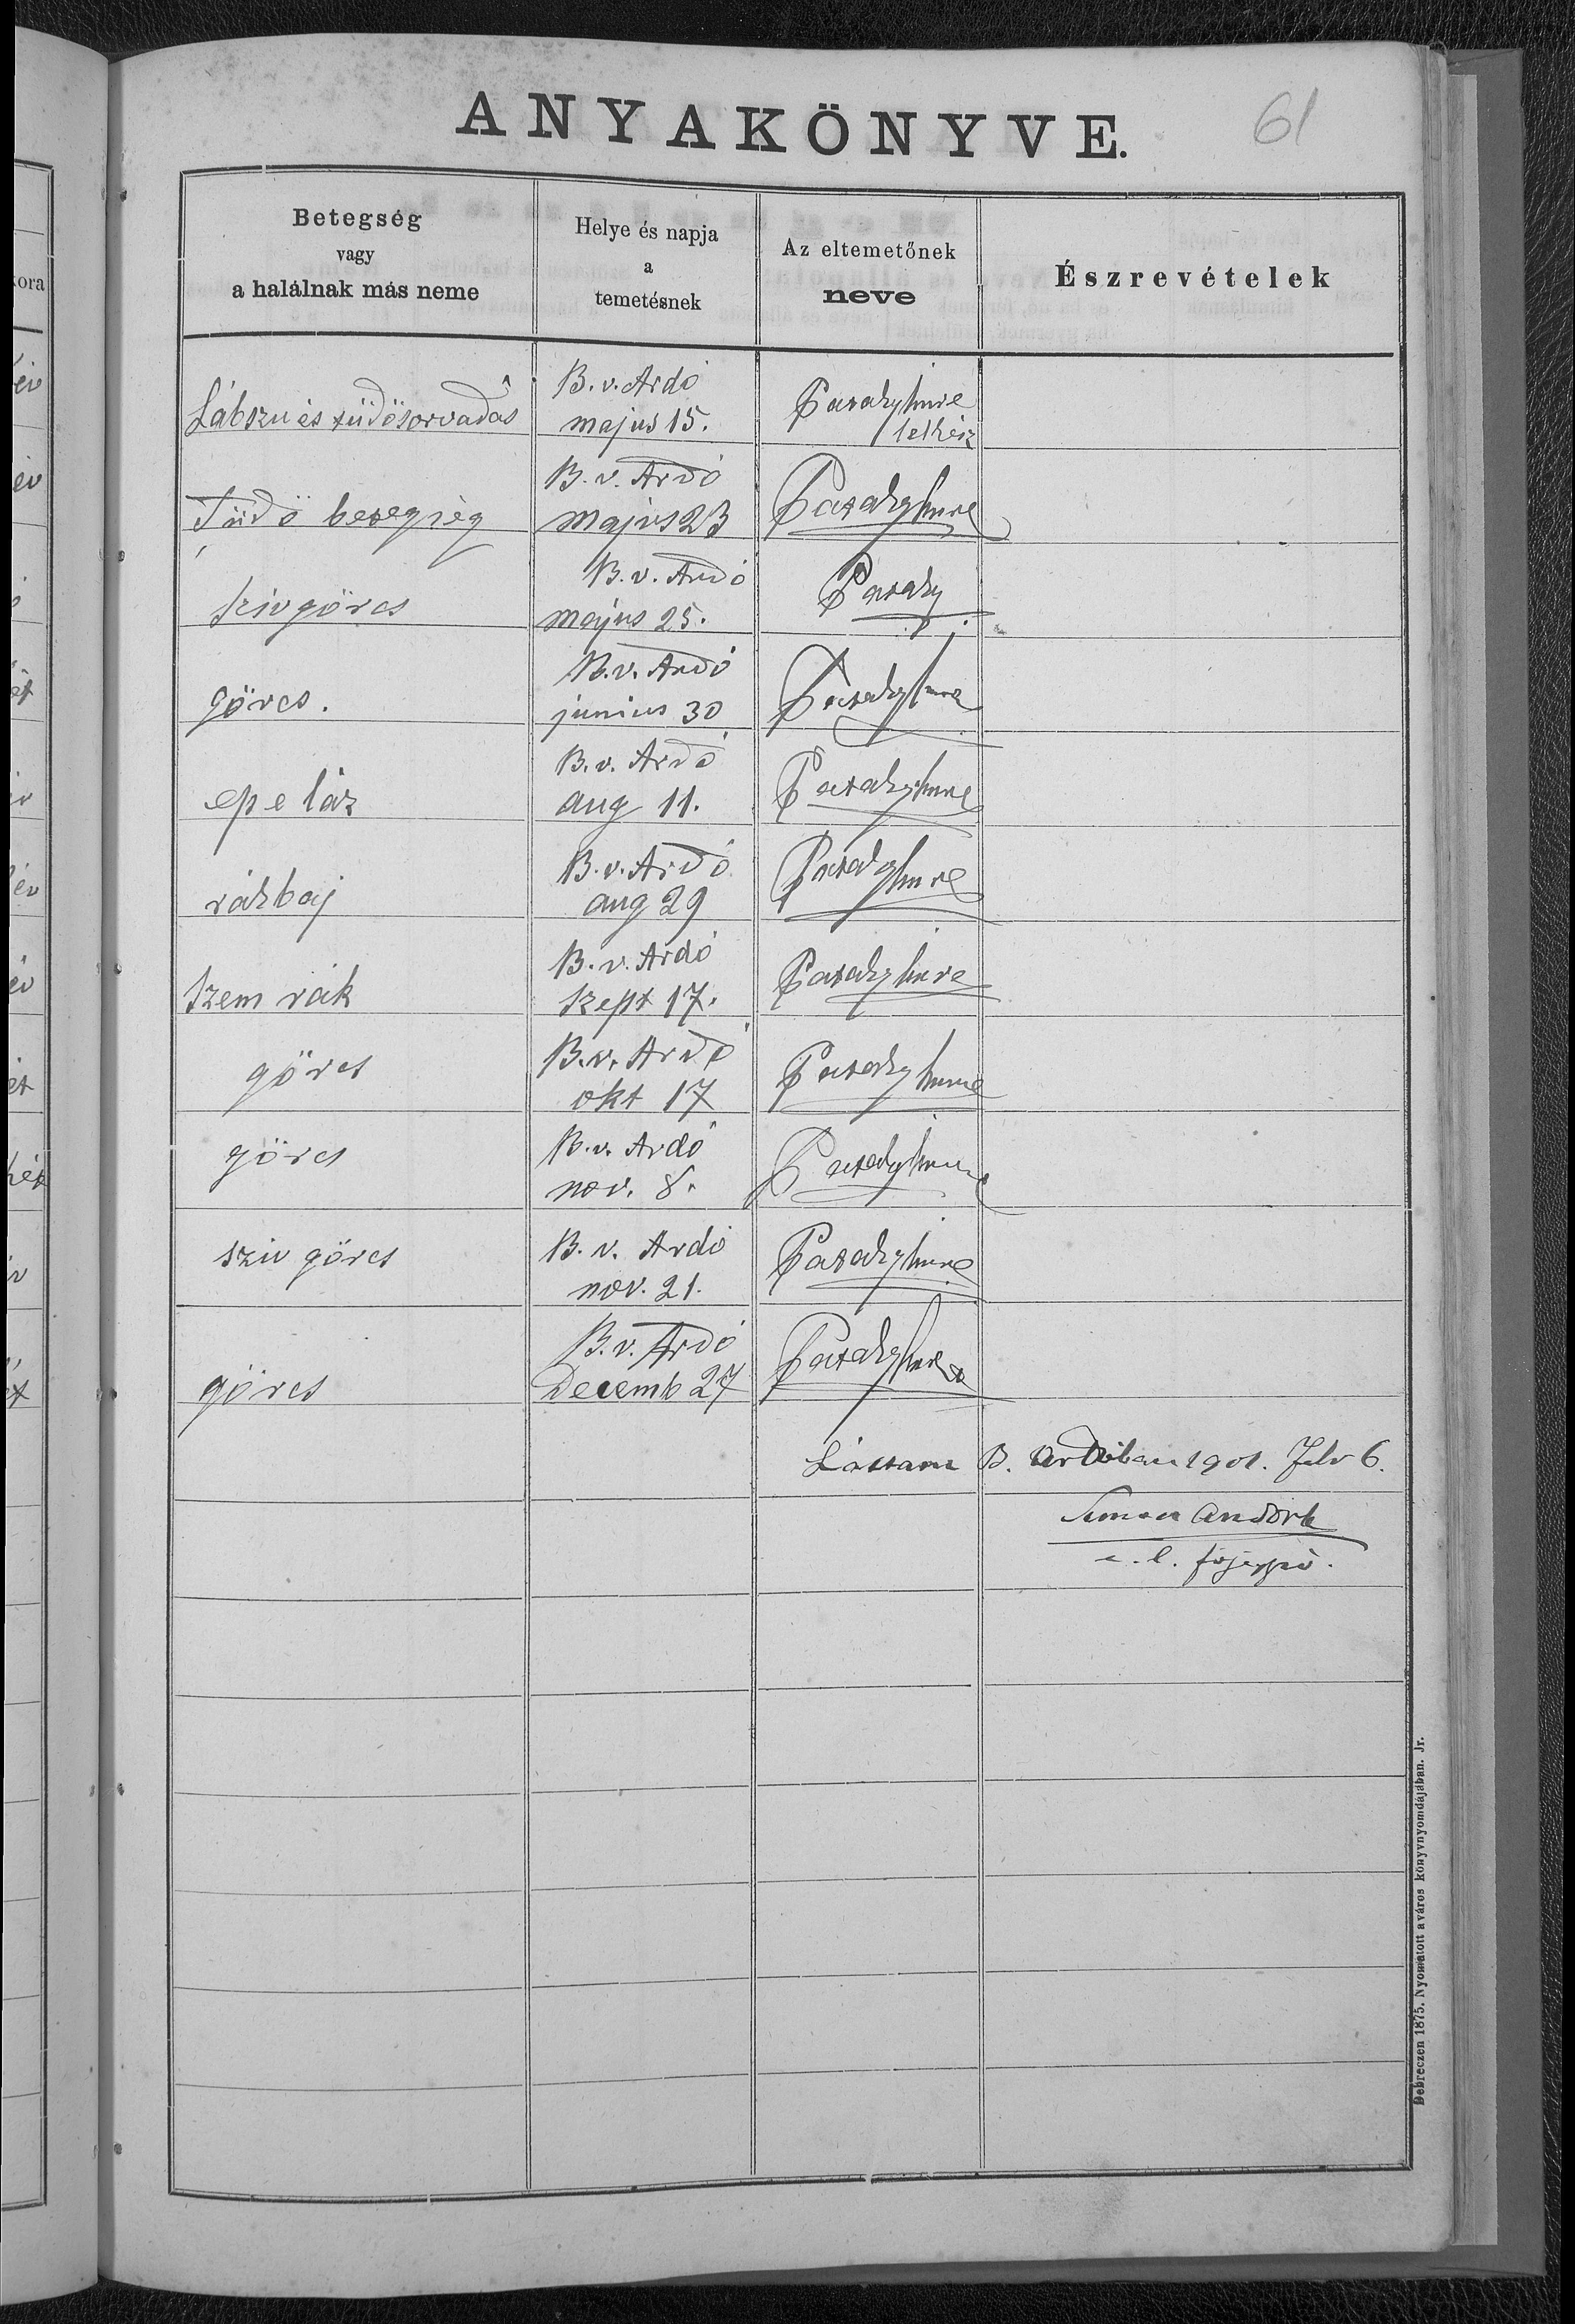 ANYAKÖNYVE.
61
Betegség
vagy
a halálnak más neme
Helye és napja
a
temetésnek
Az eltemetőnek
neve
Észrevételek
kora
B. v. Ardó
Lábszu és tüdősorvadás
május 15.
Pataky Imre
lelkész
B. v. Ardó
Tüdő betegség
május 23
Pataky Imre
B. v. Ardó
szivgörcs
május 25.
Pataky
B. v. Ardó
görcs.
junius 30
Pataky Imre
B. v. Ardó
epe láz
aug 11.
Pataky Imre
B. v. Ardó
rászbaj
aug 29
Pataky Imre
B. v. Ardó
szem rák
szept 17.
Pataky Imre
B. v. Ardó
görcs
okt 17
Pataky Imre
B. v. Ardó
görcs
nov. 8.
Pataky Imre
B. v. Ardó
sziv görcs
nov. 21.
Pataky Imre
B. v. Ardó
görcs
Decemb 27
Pataky Imre
Láttam B. Ardóban 1901. Febr 6.
Simon
főjegyző.
Debreczen 1875. Nyomatott a város könyvnyomdájában. Jr.